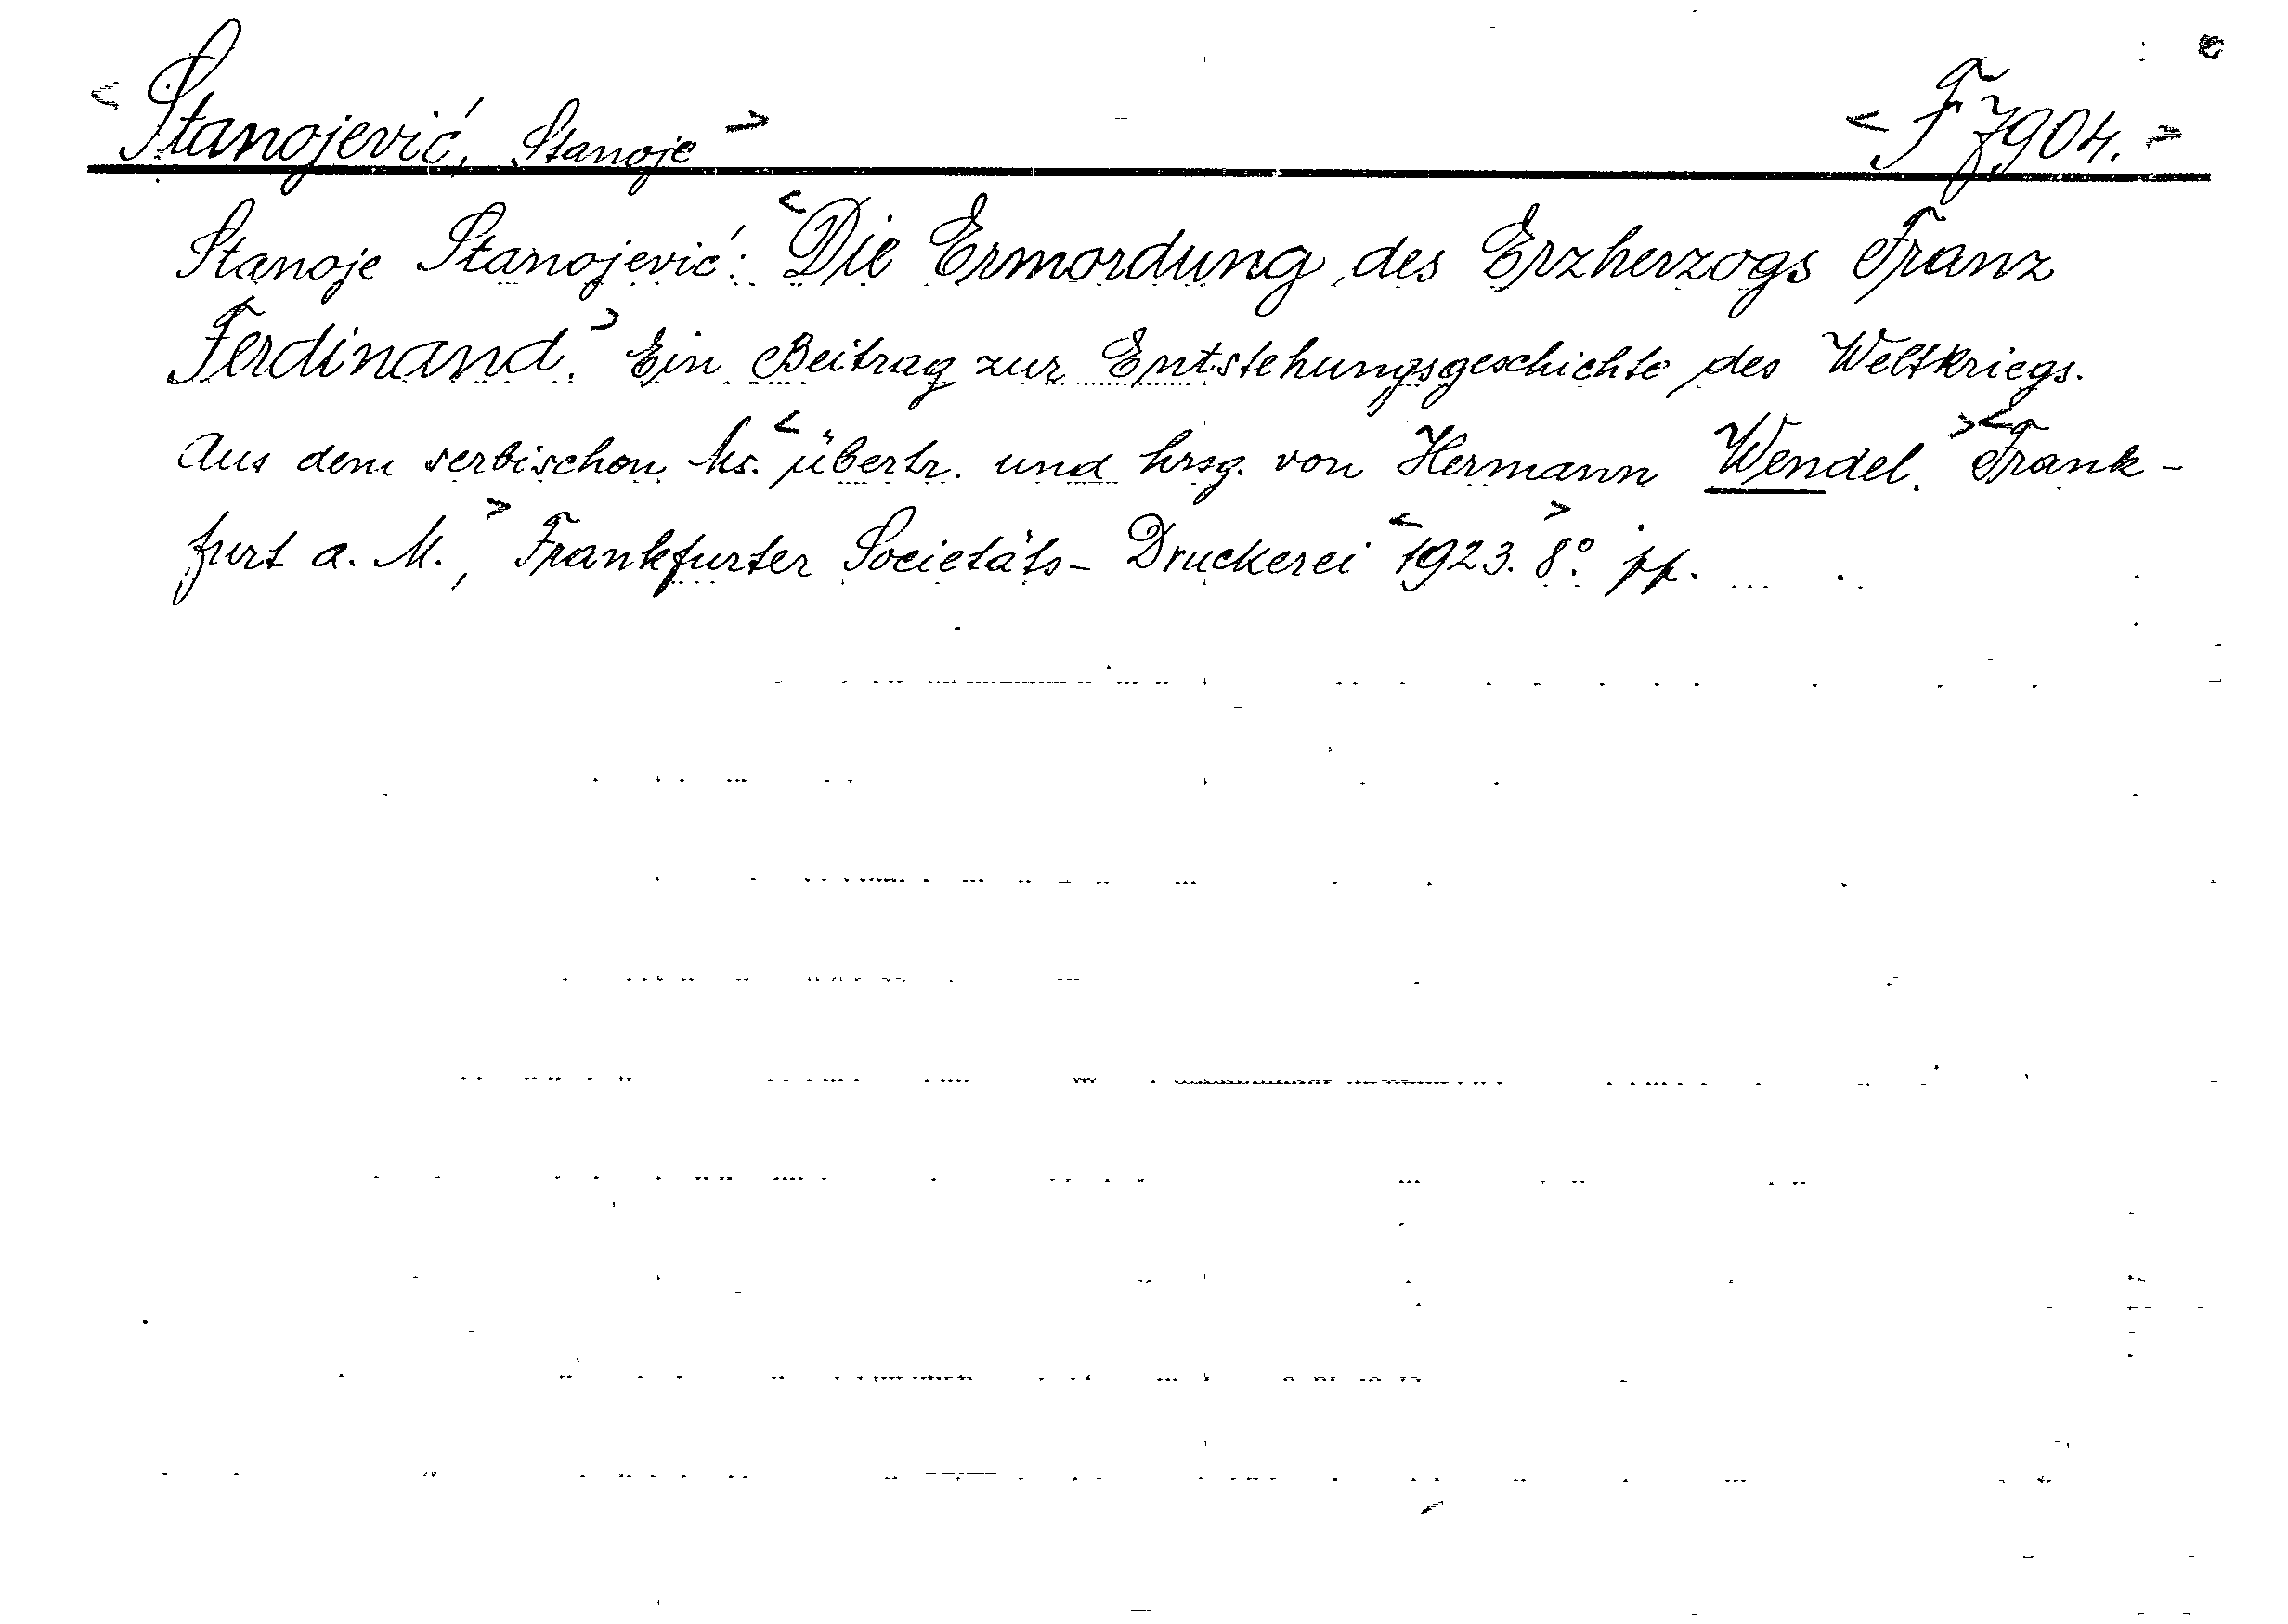 < Stanojević, Stanoje > < F 7904. >
Stanoje Stanojević: < Die Ermordung des Erzherzogs Franz
Ferdinand. > Ein Beitrag zur Entstehungsgeschichte des Weltkriegs.
Aus dem serbischen Ms. < übertr. und hrsg. von Hermann Wendel. > < Frank-
furt a. M., > Frankfurter Societäts-Druckerei < 1923. > 8°. pp.